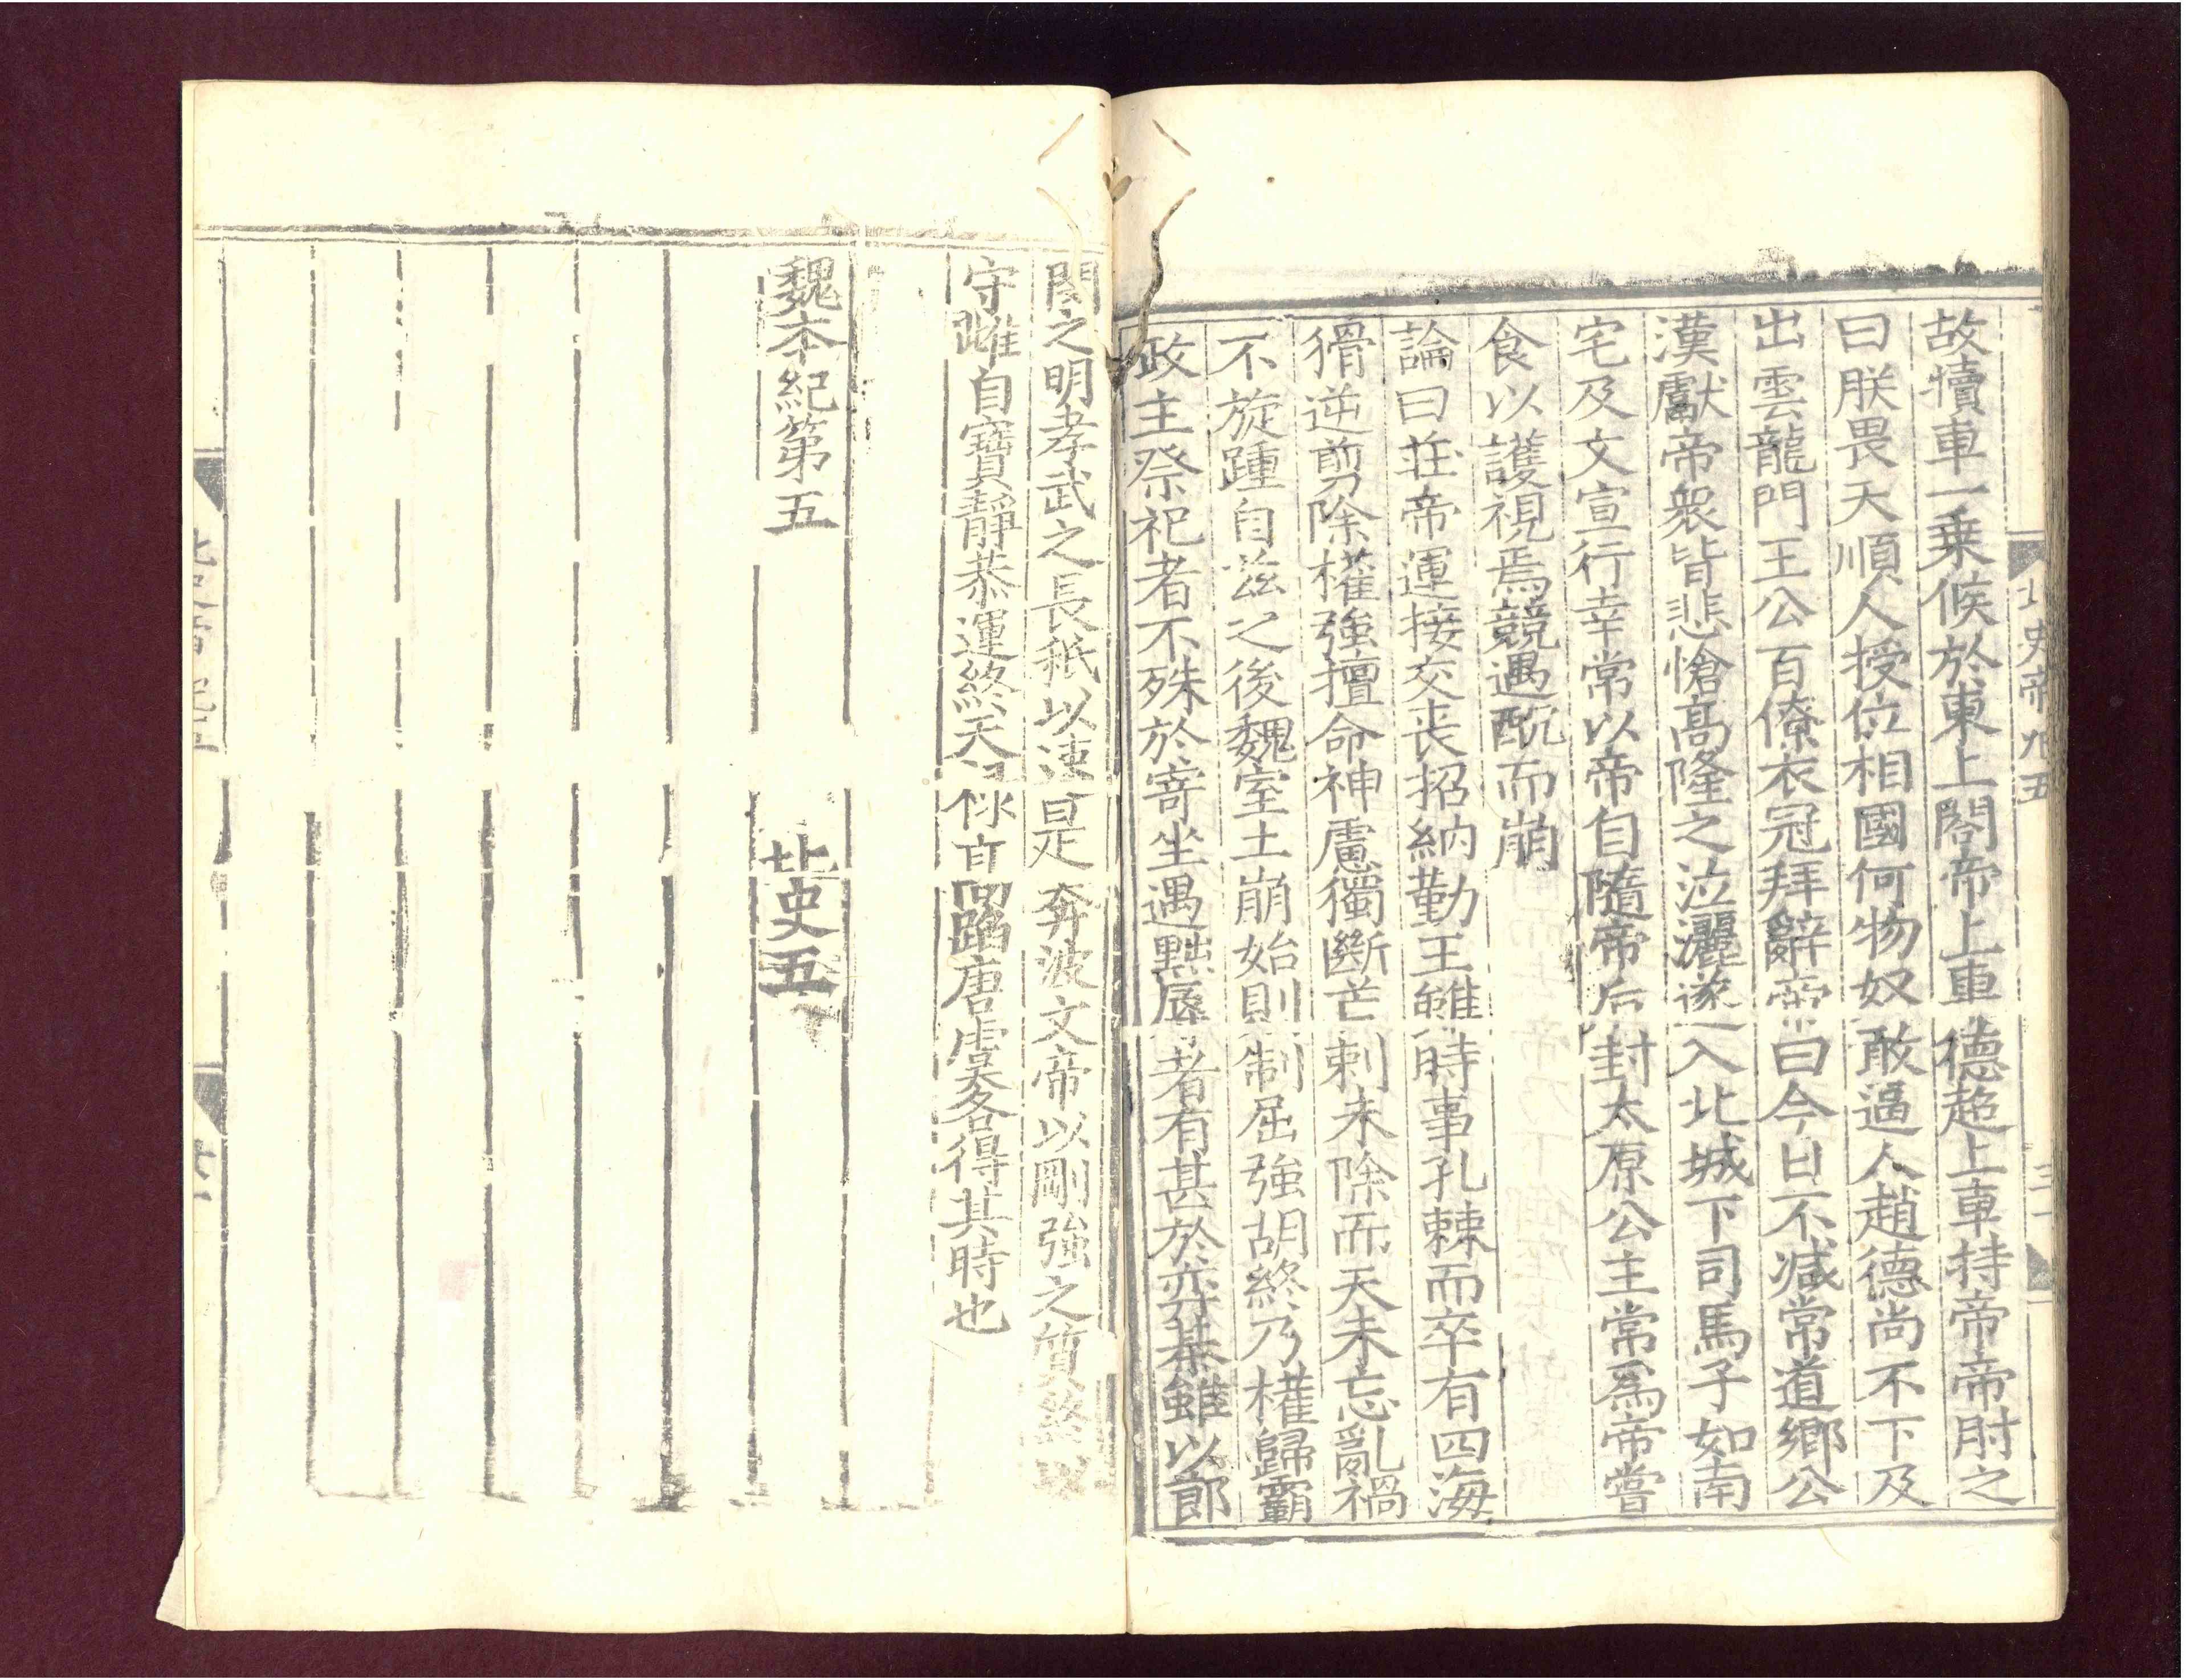 故犢車一乗候於東上閤帝上車德超上車持帝帝肘之
曰朕畏天順人授位相國何物奴敢逼人趙德尚不下及
出雲龍門王公百僚衣冠拜辭帝曰今日不減常道鄉公
漢獻帝衆皆悲愴高隆之泣灑遂入北城下司馬子如南
宅及文宣行幸常以帝自隨帝后封太原公主常爲帝嘗
食以護視焉竸遇酖而崩
論曰莊帝運接交丧招納勤王雖時事孔棘而卒有四海
猾逆剪除權強擅命神慮獨斷芒刺未除而天未忘亂禍
不旋踵自兹之後魏室土崩始則制屈強胡終乃權歸霸
政主祭祀者不殊於寄坐遇黜辱者有甚於弈棊雖以節
閔之明孝武之長秖以速是奔波文帝以剛強之質終以
守雌自寶靜恭運終天祿高蹈唐虞各得其時也
魏本紀第五
北史五
北史帝紀五